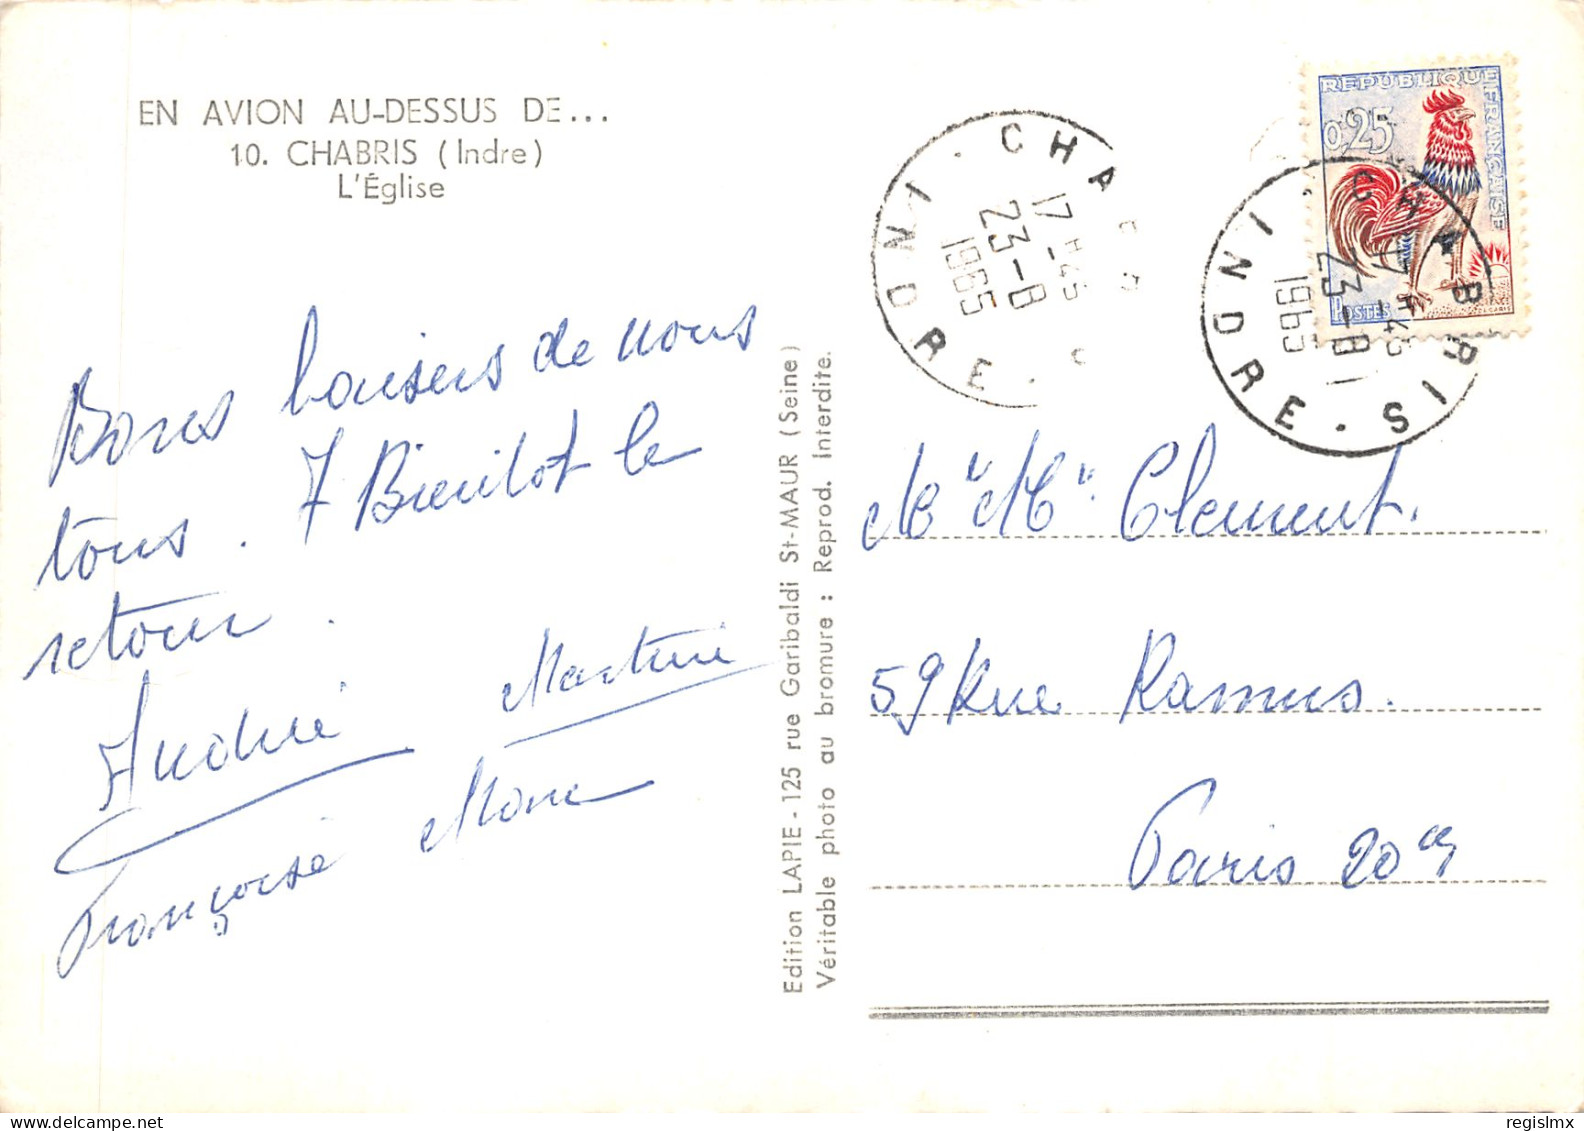 EN AVION AU-DESSUS DE...
10. CHABRIS (Indre)
L'Église
Bons baisers de nous
tous. à Bientôt le
retour.
Andrée Martine
Françoise Marc
Edition LAPIE - 125 rue Garibaldi St-MAUR (Seine)
Véritable photo au bromure : Reprod. Interdite.
CHABRIS
INDRE
17 H 45
23-8
1965
REPUBLIQUE FRANÇAISE
0,25
POSTES
CHABRIS
INDRE
17 H 45
23-8
1965
Clement.
59 Rue Ramus.
Paris 20
regislmx